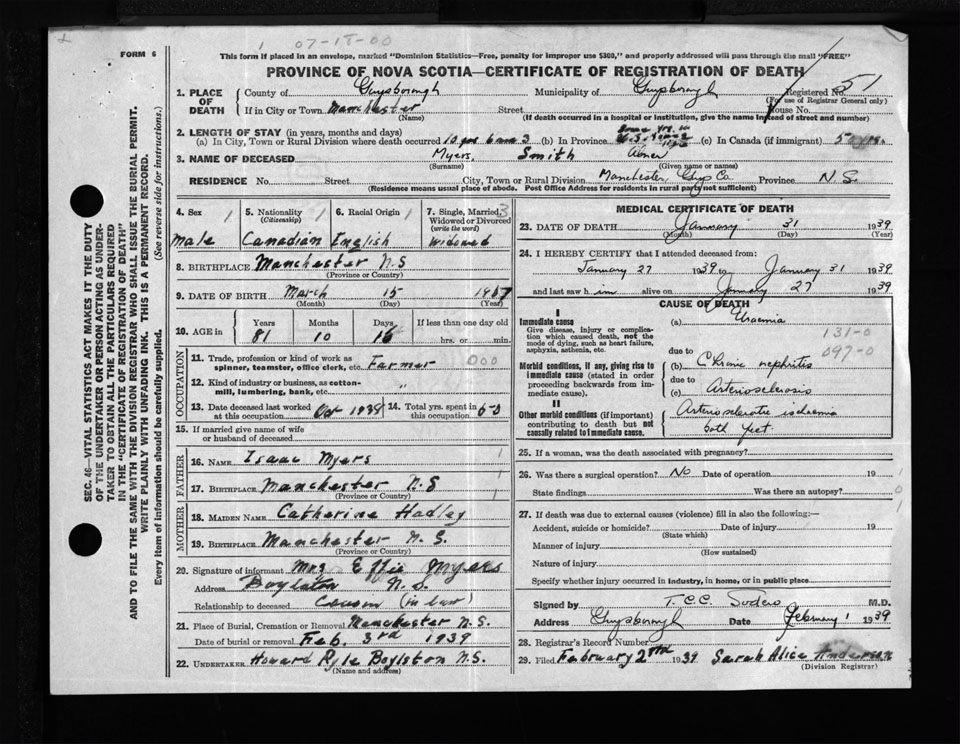 1 07-18-00
FORM 6
This form if placed in an envelope, marked "Dominion Statistics—Free, penalty for improper use $300," and properly addressed will pass through the mail "FREE"
PROVINCE OF NOVA SCOTIA—CERTIFICATE OF REGISTRATION OF DEATH
1. PLACE OF DEATH County of Guysborough Municipality of Guysborough Registered No. 51
(For use of Registrar General only)
If in City or Town Manchester Street House No.
(Name) (If death occurred in a hospital or institution, give the name instead of street and number)
2. LENGTH OF STAY (in years, months and days)
(a) In City, Town or Rural Division where death occurred (b) In Province (c) In Canada (if immigrant)
3. NAME OF DECEASED Myers, Smith Abner
(Surname) (Given name or names)
RESIDENCE No. Street City, Town or Rural Division Manchester Guys Co Province N.S.
(Residence means usual place of abode. Post Office Address for residents in rural party not sufficient)
4. Sex 1 Male
5. Nationality (Citizenship) 1 Canadian
6. Racial Origin 1 English
7. Single, Married, Widowed or Divorced (write the word) 3 Widowed
8. BIRTHPLACE Manchester N.S
(Province or Country)
9. DATE OF BIRTH March 15 1857
(Month) (Day) (Year)
10. AGE in Years Months Days If less than one day old
81 10 16 hrs. or min.
OCCUPATION
11. Trade, profession or kind of work as spinner, teamster, office clerk, etc. Farmer 000
12. Kind of industry or business, as cotton-mill, lumbering, bank, etc. "
13. Date deceased last worked at this occupation Oct 1938 14. Total yrs. spent in this occupation 60
15. If married give name of wife or husband of deceased
FATHER
16. NAME Isaac Myers 1
17. BIRTHPLACE Manchester N.S 1
(Province or Country)
MOTHER
18. MAIDEN NAME Catherine Hadley
19. BIRTHPLACE Manchester N.S.
(Province or Country)
20. Signature of informant Mrs Effie Myers
Address Boylston N.S.
Relationship to deceased (in law)
21. Place of Burial, Cremation or Removal Manchester N.S.
Date of burial or removal Feb. 3rd 1939
22. UNDERTAKER Howard Pyle Boylston N.S.
(Name and address)
MEDICAL CERTIFICATE OF DEATH
23. DATE OF DEATH January 31 1939
(Month) (Day) (Year)
24. I HEREBY CERTIFY that I attended deceased from:
January 27 1939 to January 31 1939
and last saw him alive on January 27 1939
CAUSE OF DEATH
I
Immediate cause (a) Uraemia
Give disease, injury or complication which caused death, not the mode of dying, such as heart failure, asphyxia, asthenia, etc.
131-0
097-0
due to
Morbid conditions, if any, giving rise to immediate cause (stated in order proceeding backwards from immediate cause).
(b) Chronic nephritis
due to
(c) Arteriosclerosis
II
Other morbid conditions (if important) contributing to death but not causally related to immediate cause.
Arteriosclerotic ischaemia
both feet.
25. If a woman, was the death associated with pregnancy?
26. Was there a surgical operation? No Date of operation 19 1
State findings Was there an autopsy? 0
27. If death was due to external causes (violence) fill in also the following:— 1
Accident, suicide or homicide? Date of injury 19
(State which)
Manner of injury
(How sustained)
Nature of injury
Specify whether injury occurred in industry, in home, or in public place
Signed by T.C.C. Sodero M.D.
Address Guysborough Date February 1 1939
28. Registrar's Record Number
29. Filed February 2nd 1939 Sarah Alice Anderson
(Division Registrar)
SEC. 46—VITAL STATISTICS ACT MAKES IT THE DUTY
OF THE UNDERTAKER OR PERSON ACTING AS UNDER-
TAKER TO OBTAIN ALL THE PARTICULARS REQUIRED
IN THE "CERTIFICATE OF REGISTRATION OF DEATH"
AND TO FILE THE SAME WITH THE DIVISION REGISTRAR WHO SHALL ISSUE THE BURIAL PERMIT.
WRITE PLAINLY WITH UNFADING INK. THIS IS A PERMANENT RECORD.
Every item of information should be carefully supplied. (See reverse side for instructions.)